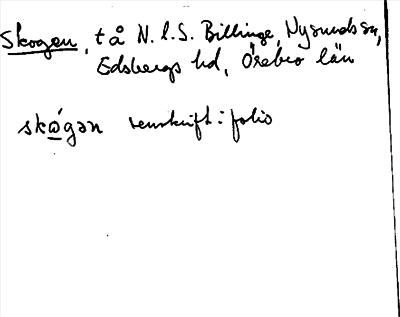 Skogen, tå N. l. S. Billinge, Nysunds sn,
Edsbergs hd, Örebro län
skógən renskrift i folio